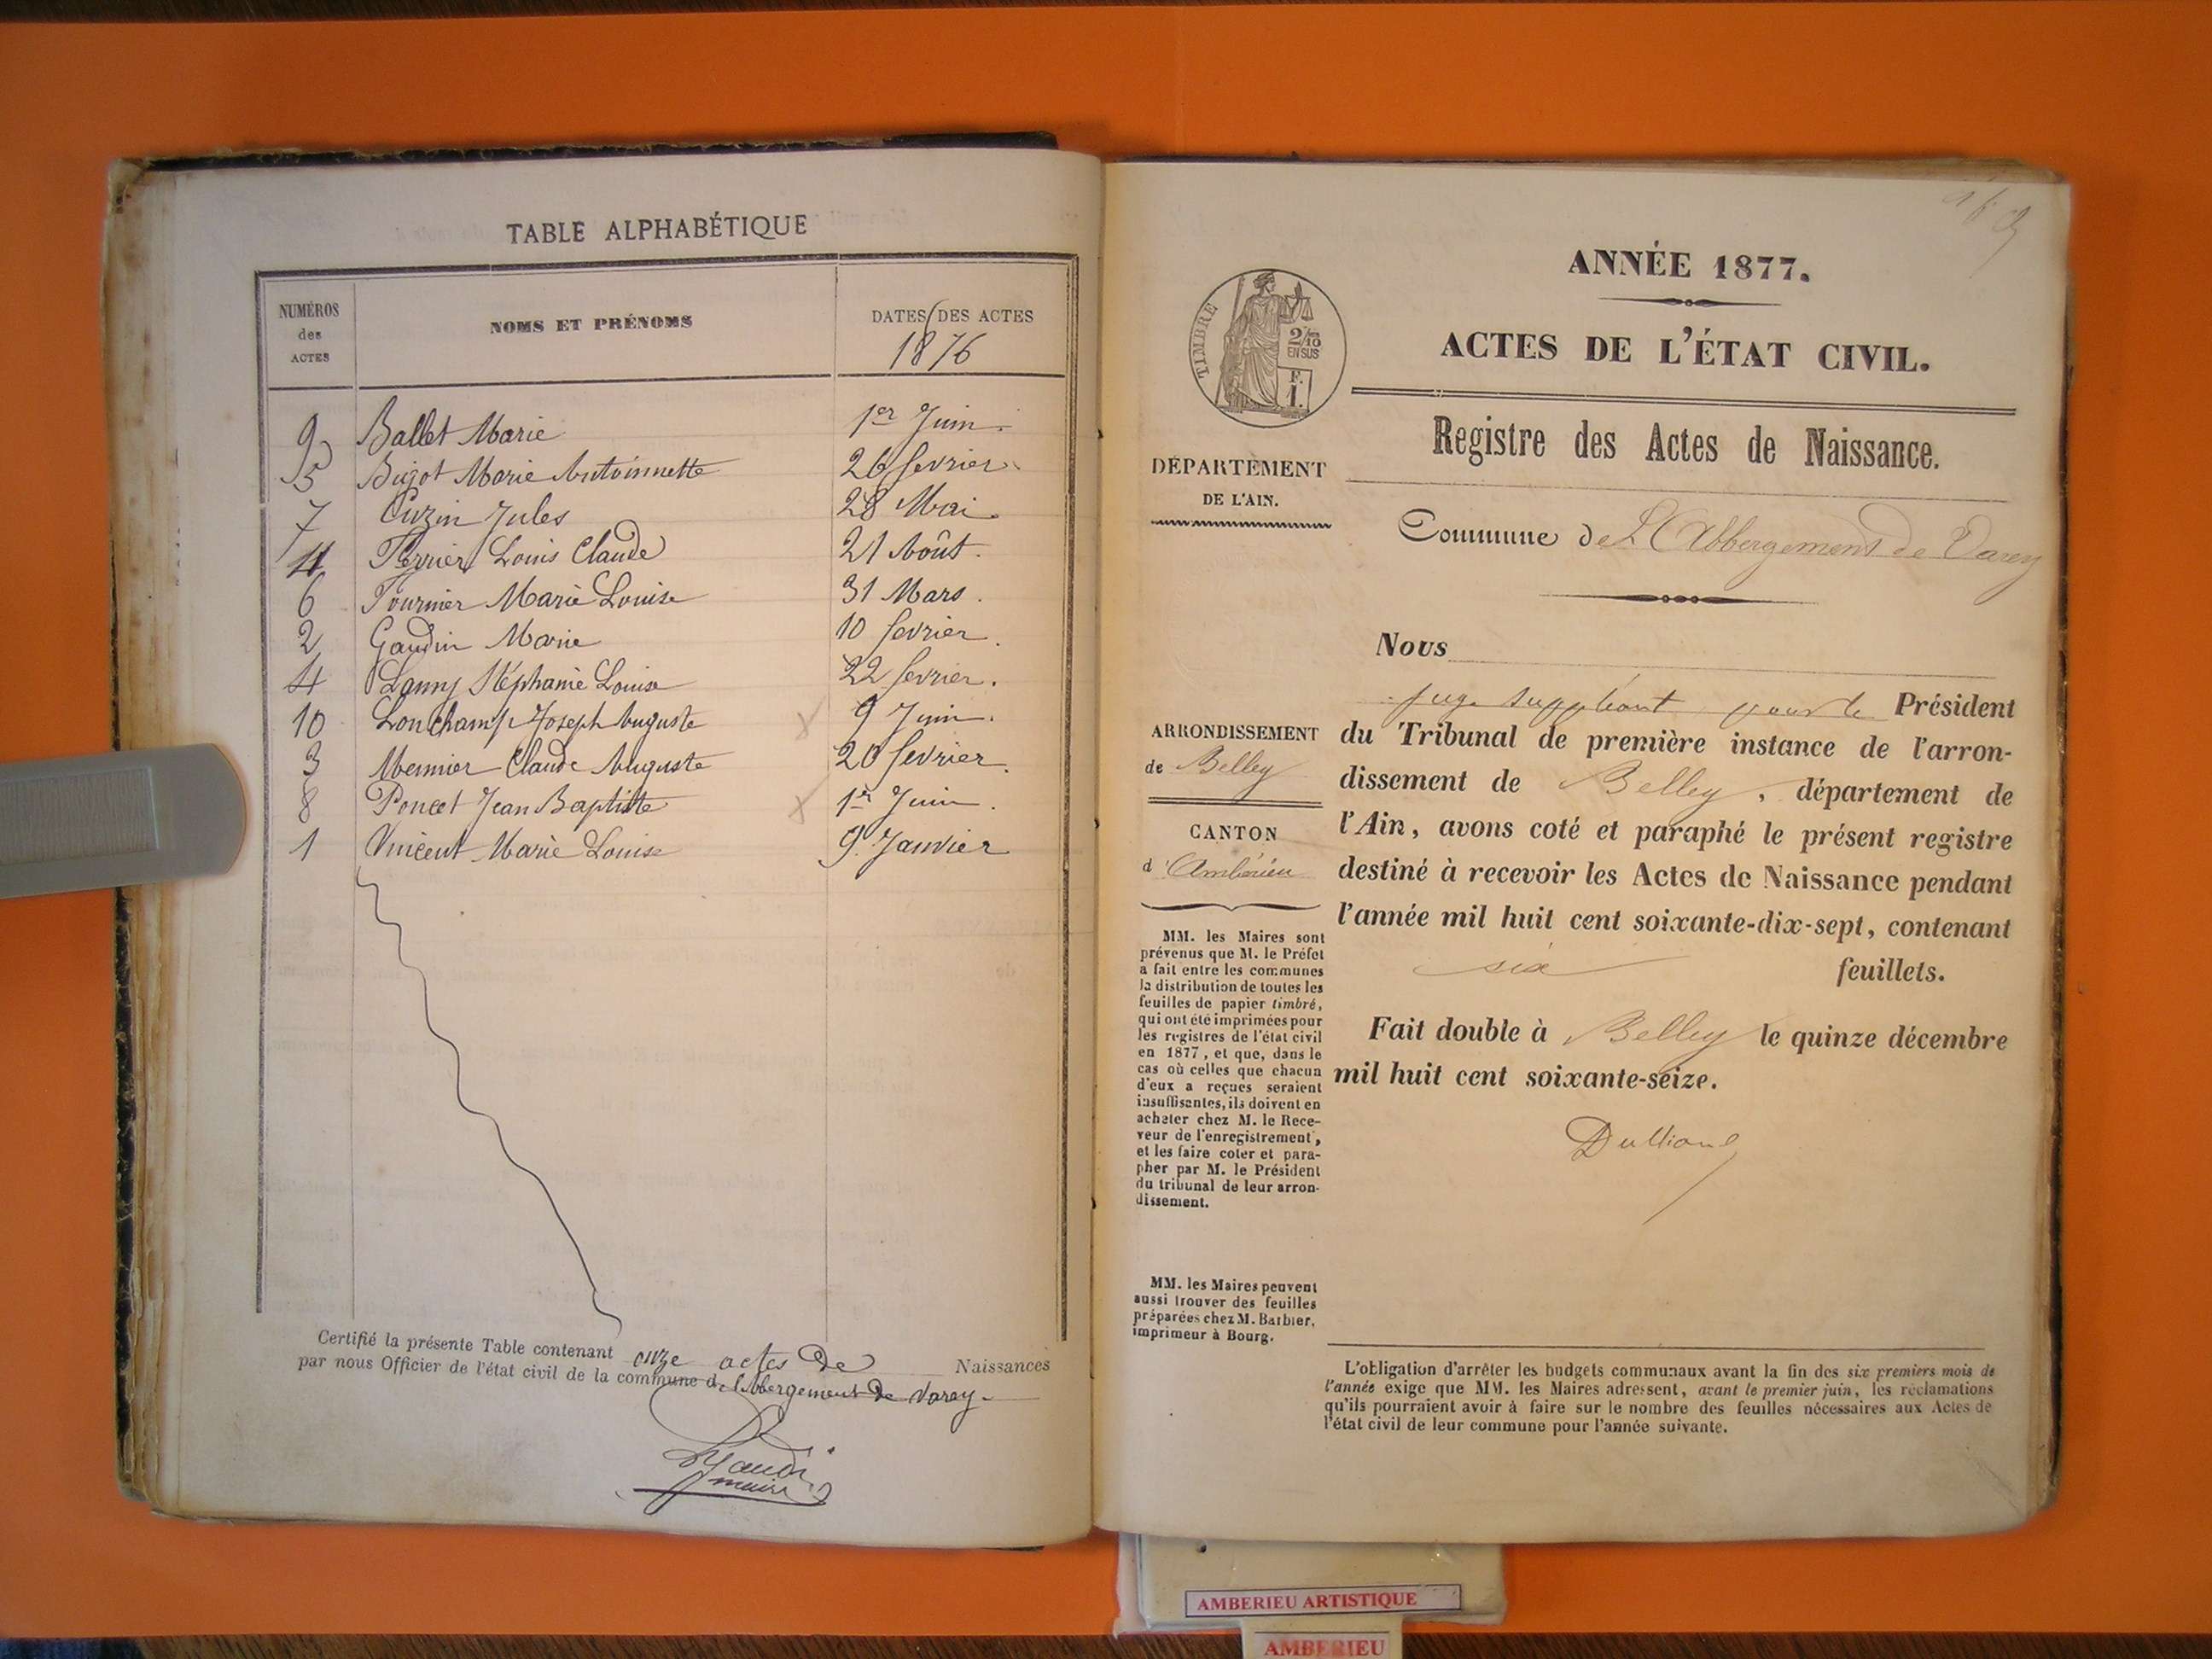 TABLE ALPHABÉTIQUE
NUMÉROS des ACTES
NOMS ET PRÉNOMS
DATES DES ACTES
1876
9 Ballet Marie 1er Juin.
5 Bugot Marie Antoinnette 26 fevrier
7 Cuzin Jules 28 Mai
11 Ferrier Louis Claude 21 Août.
6 Fournier Marie Louise 31 Mars.
2 Gaudin Marie 10 fevrier.
4 Lanny Stéphanie Louise 22 fevrier.
10 Lonchamp Joseph Auguste 9 Juin.
3 Mermier Claude Auguste 20 fevrier.
8 Poncet Jean Baptiste 1er Juin.
1 Vincent Marie Louise 9 Janvier
Certifié la présente Table contenant onze actes de Naissances
par nous Officier de l'état civil de la commune d l'Abbergement de Varey
maire
TIMBRE
2/10
EN SUS
F.
1.
ANNÉE 1877.
ACTES DE L'ÉTAT CIVIL.
Registre des Actes de Naissance.
DÉPARTEMENT
DE L'AIN.
Commune de L'Abbergement de Varey
Nous
juge suppléant pour le Président
du Tribunal de première instance de l'arron-
dissement de Belley, département de
l'Ain, avons coté et paraphé le présent registre
destiné à recevoir les Actes de Naissance pendant
l'année mil huit cent soixante-dix-sept, contenant
six feuillets.
Fait double à Belley le quinze décembre
mil huit cent soixante-seize.
ARRONDISSEMENT
de Belley
CANTON
d'Ambérieu
MM. les Maires sont
prévenus que M. le Préfet
a fait entre les communes
la distribution de toutes les
feuilles de papier timbré,
qui ont été imprimées pour
les registres de l'état civil
en 1877, et que, dans le
cas où celles que chacun
d'eux a reçues seraient
insuffisantes, ils doivent en
acheter chez M. le Rece-
veur de l'enregistrement,
et les faire coter et para-
pher par M. le Président
du tribunal de leur arron-
dissement.
MM. les Maires peuvent
aussi trouver des feuilles
préparées chez M. Barbier,
imprimeur à Bourg.
L'obligation d'arrêter les budgets communaux avant la fin des six premiers mois de
l'année exige que MM. les Maires adressent, avant le premier juin, les réclamations
qu'ils pourraient avoir à faire sur le nombre des feuilles nécessaires aux Actes de
l'état civil de leur commune pour l'année suivante.
AMBERIEU ARTISTIQUE
AMBERIEU